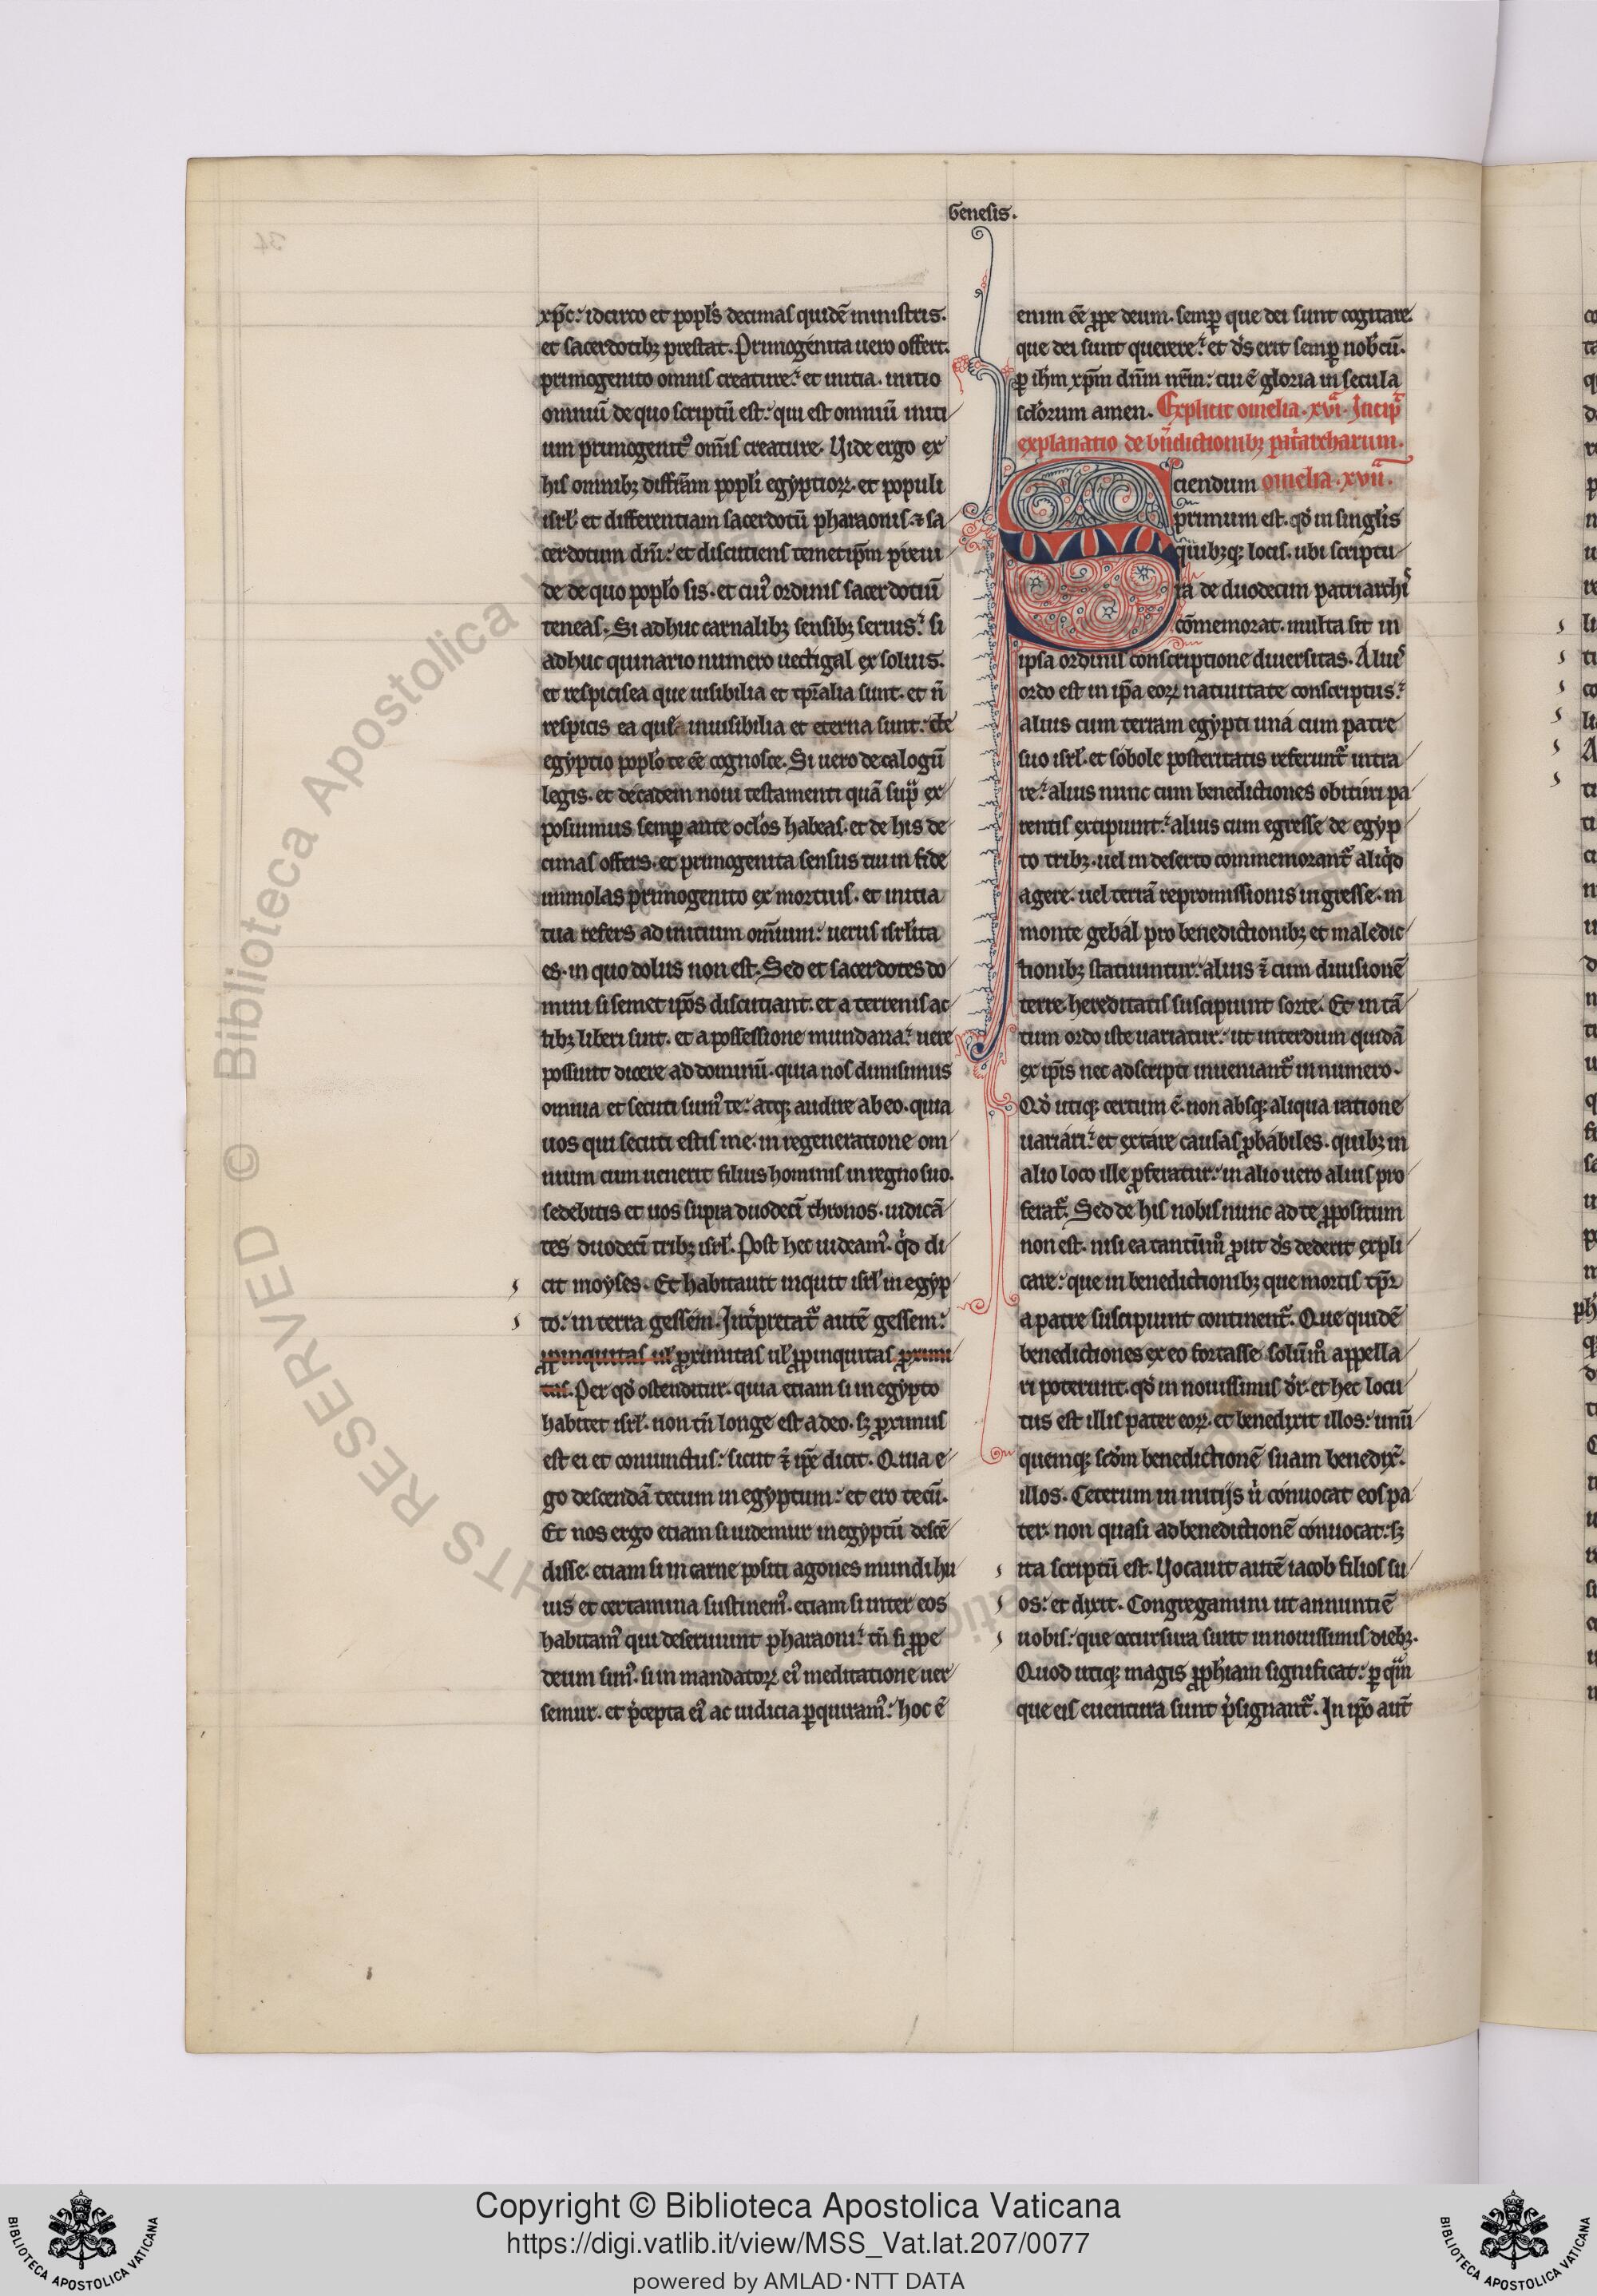 Genesis.
xp̄c: idcirco et popl's decimas quidē ministris.
et sacerdotibꝫ prestat. Primogenita uero offert.
primogenito omnis creature: et initia. initio
omniū de quo scriptū est: qui est omniū initi
um primogenitꝰ om̄is creature. Uide ergo ex
his omnibꝫ diffr̄am popl'i egyptioꝝ. et populi
isrl'. et differentiam sacerdotū pharaonis. ⁊ sa
cerdotum dn̄i: et discutiens temetip̄m preui
de de quo popl'o sis. et cuiꝰ ordinis sacerdotiū
teneas. Si adhuc carnalibꝫ sensibꝫ seruis: si
adhuc quinario numero uectigal exsoluis.
et respicis ea que uisibilia et tp̄ralia sunt. et n̄
respicis ea que inuisibilia et eterna sunt: de
egyptio popl'o te eē cognosce. Si uero decalogū
legis. et decadem noui testamenti quā supͣ ex
posuimus semꝑ ante ocl'os habeas. et de his de
cimas offers. et primogenita sensus tui in fide
immolas primogenito ex mortuis. et initia
tua refers ad initium om̄ium: uerus isrl'ita
es. in quo dolus non est. Sed et sacerdotes do
mini si semet ip̄os discutiant. et a terrenis ac
tibꝫ liberi sint. et a possessione mundana: uere
possunt dicere ad dominū. quia nos dimisimus
omnia et secuti sumꝰ te: atqꝫ audire ab eo. quia
uos qui secuti estis me. in regeneratione om
nium cum uenerit filius hominis in regno suo.
sedebitis et uos supra duodecī thronos. iudicā
tes duodecī tribꝫ isrl'. Post hec uideamꝰ. qͥd di
cit moyses. Et habitauit inquit isrl' in egyp
to: in terra gessem. Int̄pretat᷑ autē gessem:
ꝓpinquitas ul' ꝓximitas ul' ꝓpinquitas ꝓximi
tas. Per qd̄ ostenditur. quia etiam si in egypto
habitet isrl'. non tn̄ longe est a deo. sꝫ ꝓximus
est ei et coniunctus: sicut ⁊ ip̄e dicit. Quia e
go descendā tecum in egyptum: et ero tecū.
Et nos ergo etiam si uidemur in egyptū descē
disse. etiam si in carne positi agones mundi hu
ius et certamina sustinemꝰ. etiam si inter eos
habitamꝰ qui deseruiunt pharaoni: tn̄ si ꝓpe
deum simꝰ. si in mandatoꝝ eiꝰ meditatione uer
semur. et p̄cepta eiꝰ ac iudicia ꝑquiramꝰ: hoc ē
enim eē ꝓpe deum. semꝑ que dei sunt cogitare.
que dei sunt querere: et ds̄ erit semꝑ nobcū.
ꝑ ih̄m xp̄m dn̄m nr̄m: cui ē gloria in secula
scl'orum amen. Explicit omelia. xviͣ. Incipͣ
explanatio de bn̄dictionibꝫ pat̄archarum.
Sciendum omelia. xviiͣ.
primum est. qd̄ in singl'is
quibꝫqꝫ locis. ubi scriptu
ra de duodecim patriarchis
cōmemorat. multa sit in
ipsa ordinis conscriptione diuersitas. Aliuˢ
ordo est in ip̄a eoꝝ natiuitate conscriptus:
alius cum terram egypti una cum patre
suo isrl'. et sobole posteritatis referunt᷑ intra
re: alius nunc cum benedictiones obituri pa
rentis excipiunt: alius cum egresse de egyp
to tribꝫ. uel in deserto commemorant᷑ aliqͥd
agere. uel terrā repromissionis ingresse. in
monte gebal pro benedictionibꝫ et maledic
tionibꝫ statuuntur: alius ⁊ cum diuisionē
terre hereditatis suscipiunt sorte. Et in tā
tum ordo iste uariatur: ut interdum quidā
ex ip̄is nec adscripti inueniant᷑ in numero.
Qd̄ utiqꝫ certum ē. non absqꝫ aliqua ratione
uariari: et extare causas ꝓbabiles. quibꝫ in
alio loco ille ꝓferatur: in alio uero alius pro
ferat᷑. Sed de his nobis nunc ad te ꝓpositum
non est. nisi ea tantūm̊ ꝓut ds̄ dederit expli
care: que in benedictionibꝫ que mortis tp̄r
a patre suscipiunt continent᷑. Que quidē
benedictiones ex eo fortasse solūm̊ appella
ri poterunt. qd̄ in nouissimis dr̄. et hec locu
tus est illis pater eoꝝ. et benedixit illos: unū
quemqꝫ scd̄m benedictionē suam benedix̄.
illos. Ceterum in initijs ū conuocat eos pa
ter. non quasi ad benedictionē conuocat: sꝫ
ita scriptū est. Uocauit autē iacob filios su
os: et dixit. Congregamini ut annuntiē
uobis: que occursura sunt in nouissimis diebꝫ.
Quod utiqꝫ magis ꝓph̄iam significat: ꝑ qͣm
que eis euentura sunt p̄signant᷑. In ip̄o aut̄
Copyright © Biblioteca Apostolica Vaticana
https://digi.vatlib.it/view/MSS_Vat.lat.207/0077
powered by AMLAD·NTT DATA